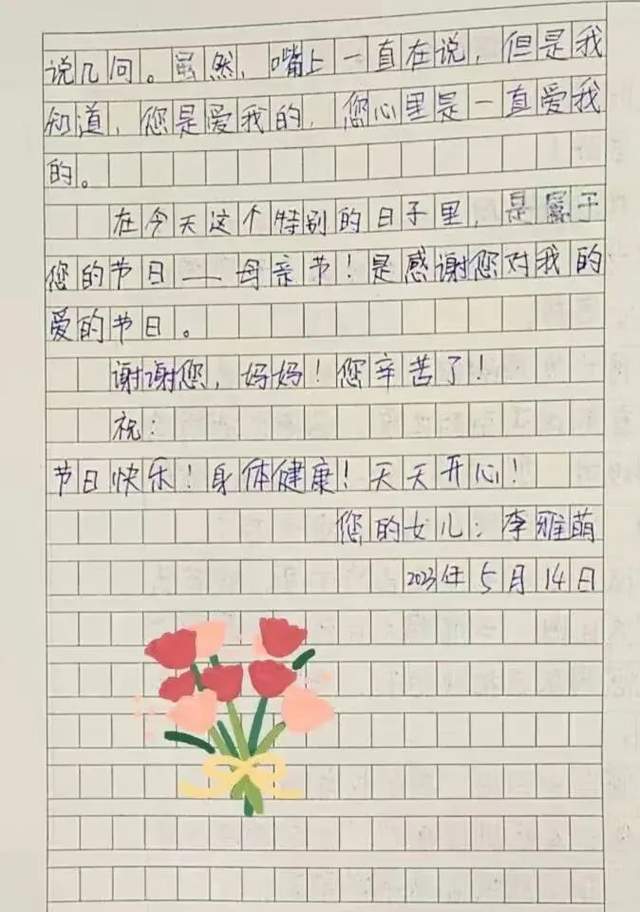 说几句。虽然，嘴上一直在说，但是我
知道，您是爱我的，您心里是一直爱我
的。
在今天这个特别的日子里，是属于
您的节日——母亲节！是感谢您对我的
爱的节日。
谢谢您，妈妈！您辛苦了！
祝：
节日快乐！身体健康！天天开心！
您的女儿：李雅萌
2023年5月14日